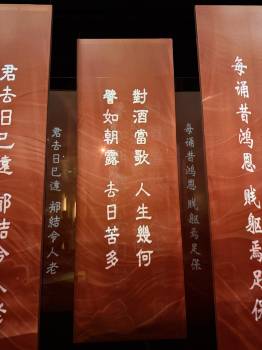 每誦昔鴻恩 賤軀焉足保
每誦昔鴻恩 賤軀焉足保
對酒當歌 人生幾何
譬如朝露 去日苦多
君去日已遠 郁結令人老
君去日已遠 郁結令人老